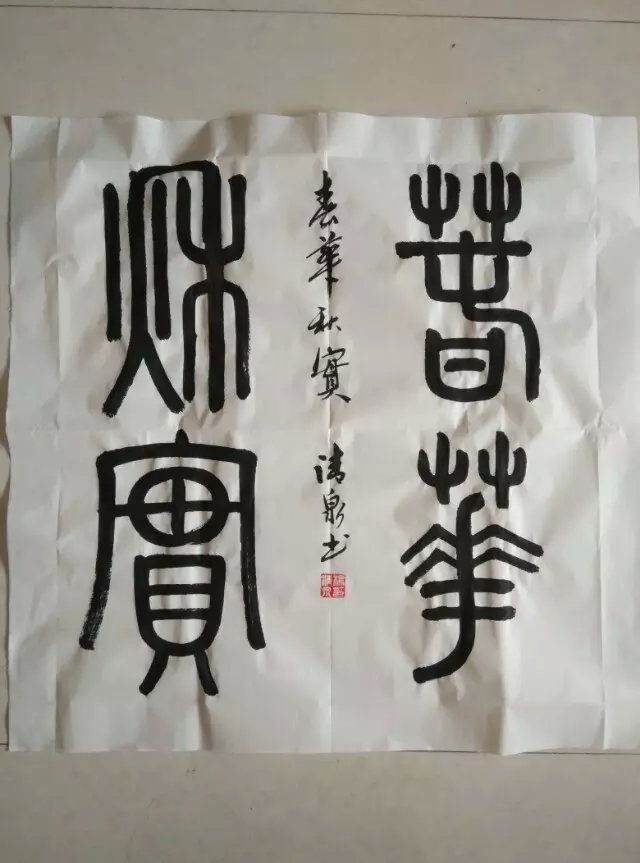 春華
秋實
春華秋實 清泉书